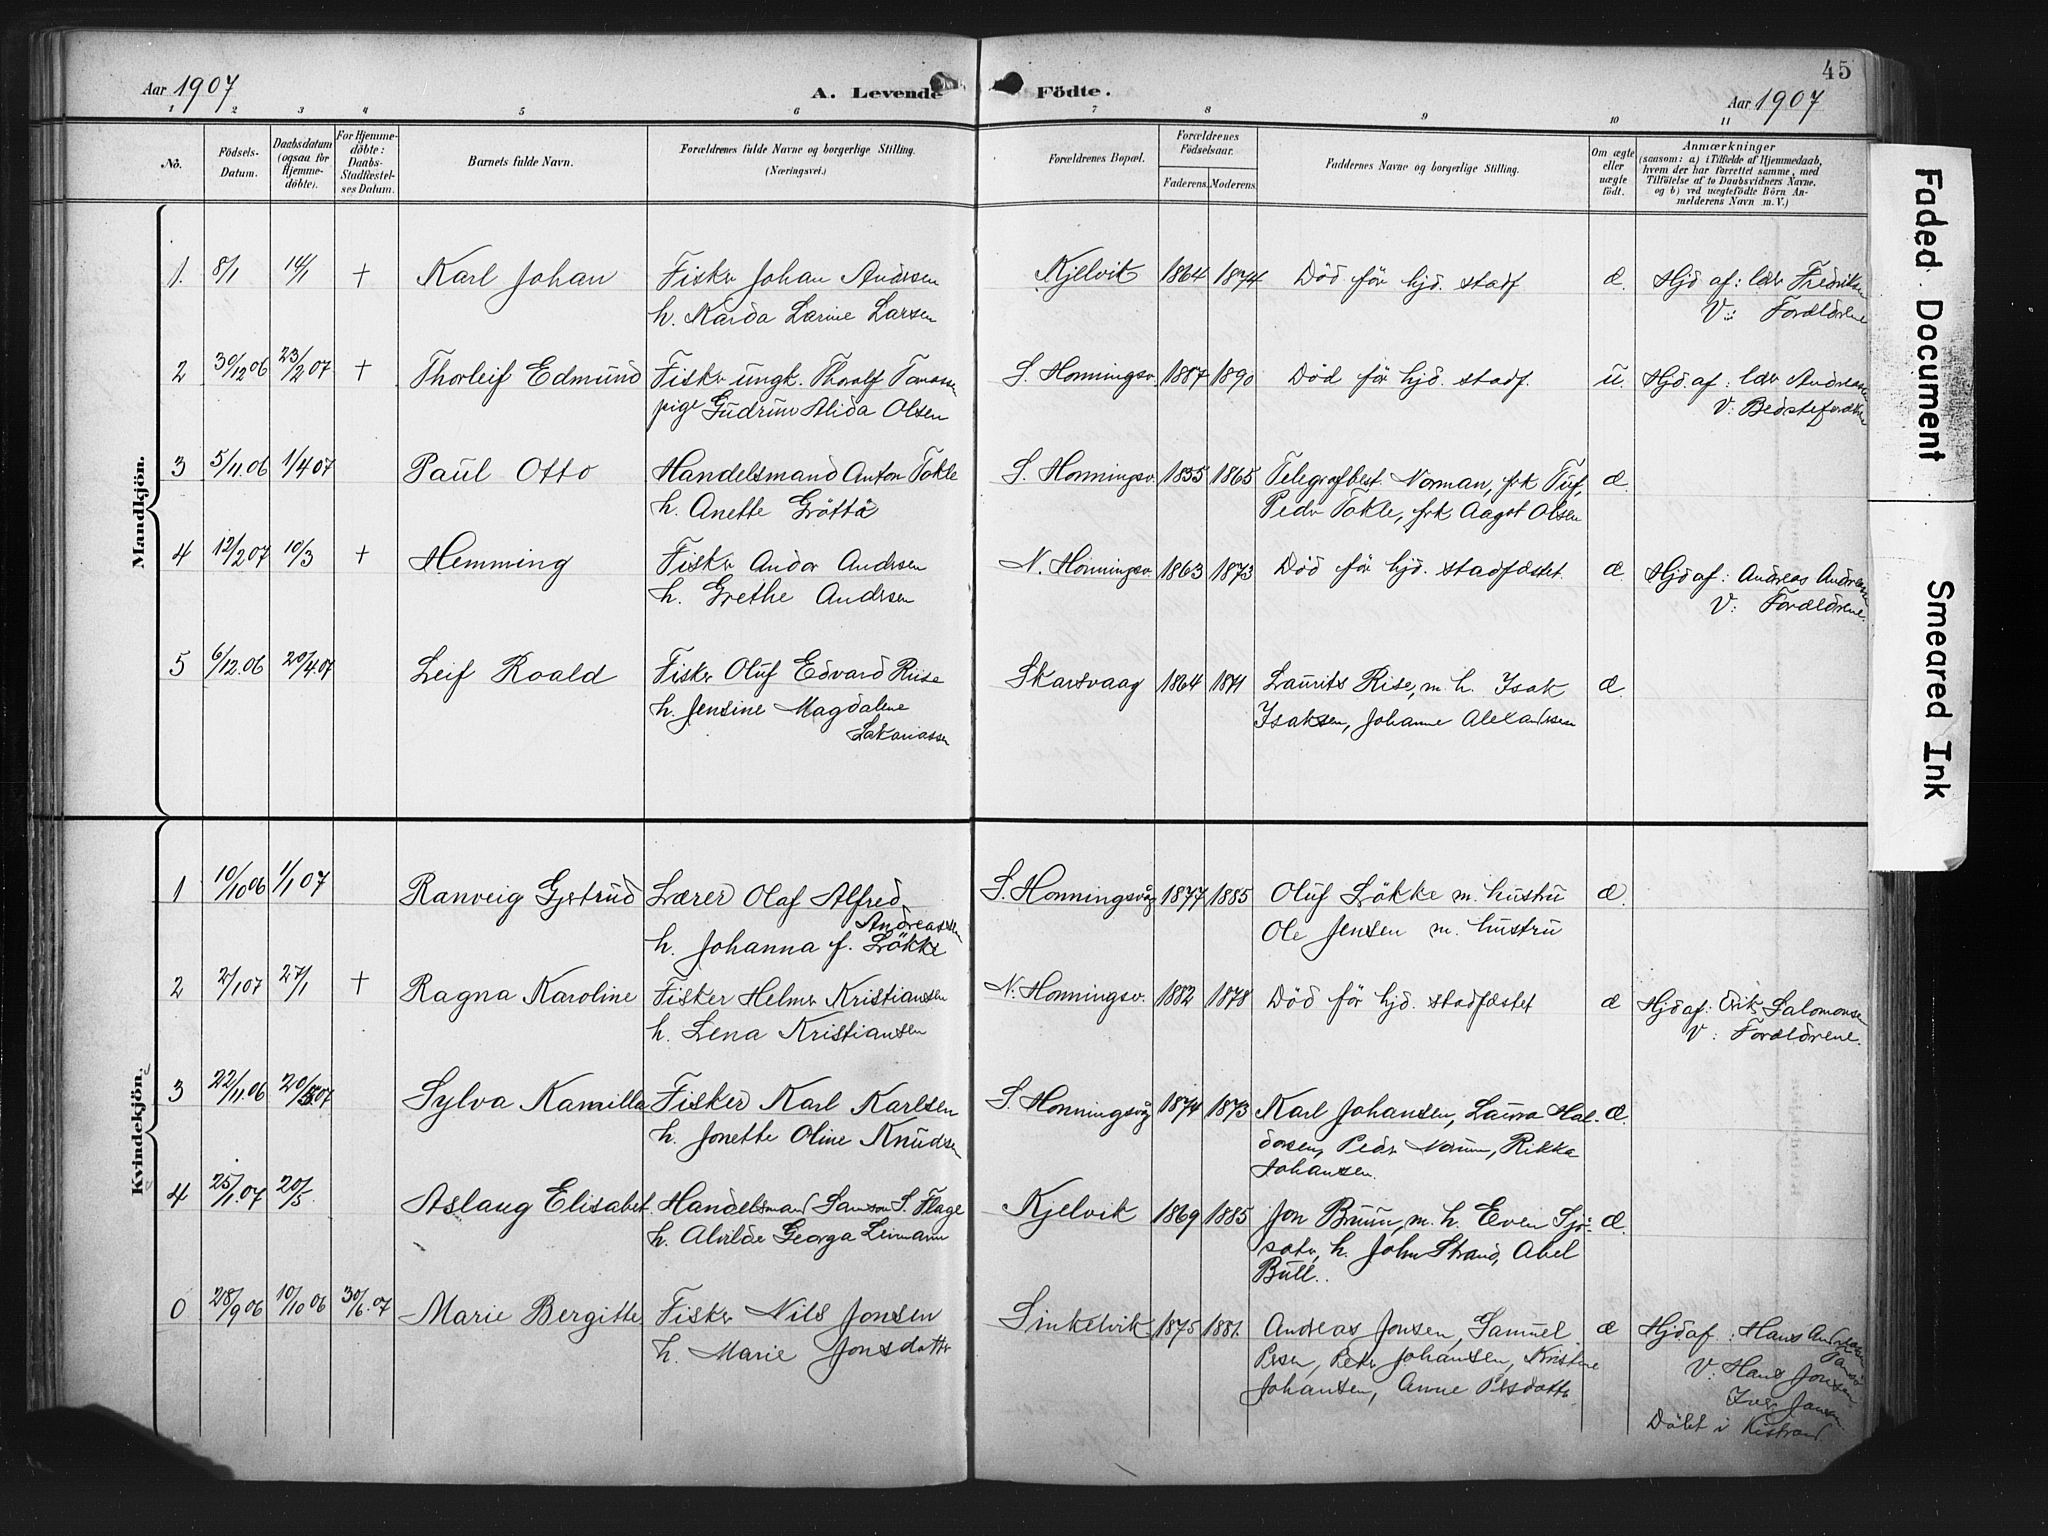 45
Aar 1907
A. Levende Födte.
Aar 1907
1 2 3 4 5 6 7 8 9 10 11
No.
Födsels-
Datum.
Daabsdatum
(ogsaa for
Hjemme-
döbte).
For Hjemme-
döbte:
Daabs-
Stadfæstel-
ses Datum.
Barnets fulde Navn.
Forældrenes fulde Navne og borgerlige Stilling.
(Næringsvei.)
Forældrenes Bopæl.
Forældrenes
Födselsaar.
Faderens. Moderens.
Faddernes Navne og borgerlige Stilling.
Om ægte
eller
uægte
födt.
Anmærkninger
(saasom: a) i Tilfælde af Hjemmedaab,
hvem der har forrettet samme, med
Tilföielse af to Daabsvidners Navne.
og b) ved uægtefödte Börn An-
melderens Navn m. V.)
Mandkjön.
1. 8/1 14/1 + Karl Johan Fisker Johan Andersen Kjelvik 1864 1874 Död för hjd. stadf æ. Hjd af: lær Fredriksen
h. Karda Larine Larsen V: Forældrene
2 30/12 06 23/2 07 + Thorleif Edmund Fisker ungk. Thoralf S. Honningsv. 1887 1890 Död för hjd. stadf. u. Hjd. af: lær Andreassen
pige Gudrun Alida Olsen V: Bedsteforældr
3 5/11.06 1/4 07 Paul Otto Handelsmand Anton Tokle S. Honningsv. 1855 1865 Telegrafbest. Norman, frk
h. Anette Gröttå Peder Tokle, frk Aagot Olsen æ.
4 12/2 07 10/3 + Hemming Fisker Andor Andersen N. Honningsv. 1863 1873 Död för hjd. stadfæstet. æ. Hjd af: Andreas Andreassen
h. Grethe Andersen V: Forældrene.
5 6/12.06 20/4.07 Leif Roald Fisker Oluf Edvard Riise Skarsvaag 1864 1871 Laurits Rise, m. h. Isak æ.
h. Jensine Magdalene Isaksen, Johanne Alexandersen
Sakariassen
Kvindekjön.
1 10/10 06 1/1 07 Ranveig Gjertrud Lærer Olaf Alfred S. Honningsvåg 1877 1885 Oluf Lökke m. hustru æ.
Andreassen
h. Johanna f. Lökke Ole Jensen m. hustru
2 2/1 07 27/1 + Ragna Karoline Fisker Helmer Kristiansen N. Honningsv. 1882 1878 Död för hjd. stadfæstet æ Hjd af: Erik Salomonsen
h. Lena Kristiansen V: Forældrene.
3 22/11.06 20/5 07 Sylva Kamilla Fisker Karl Karlsen S. Honningsvåg 1874 1873 Karl Johansen, Laura Hal- æ.
h. Jonette Oline Knudsen dorsen, Peder Norum, Rikka
Johansen.
4 25/1.07 20/5. Aslaug Elisabet Handelsmand Samson S. Flage Kjelvik 1869 1885 Jon Bruun, m. h. Even Sjö- æ.
h. Alvilde Georga Leinann sæter, h. John Strand, Abel
Bull.
0 28/9 06 10/10 06 30/6.07 Marie Bergitte Fisker Nils Jonsen Sinkelvik 1875 1881. Andreas Jonsen, Samuel æ Hjd af: Hans Andersen
h. Marie Jonsdatter Persen, Peter Johansen, Kristine V: Hans Jonsen
Johansen, Anne Persdatter Iver Jansen
Döbt i Kistrand.
Faded Document
Smeared Ink